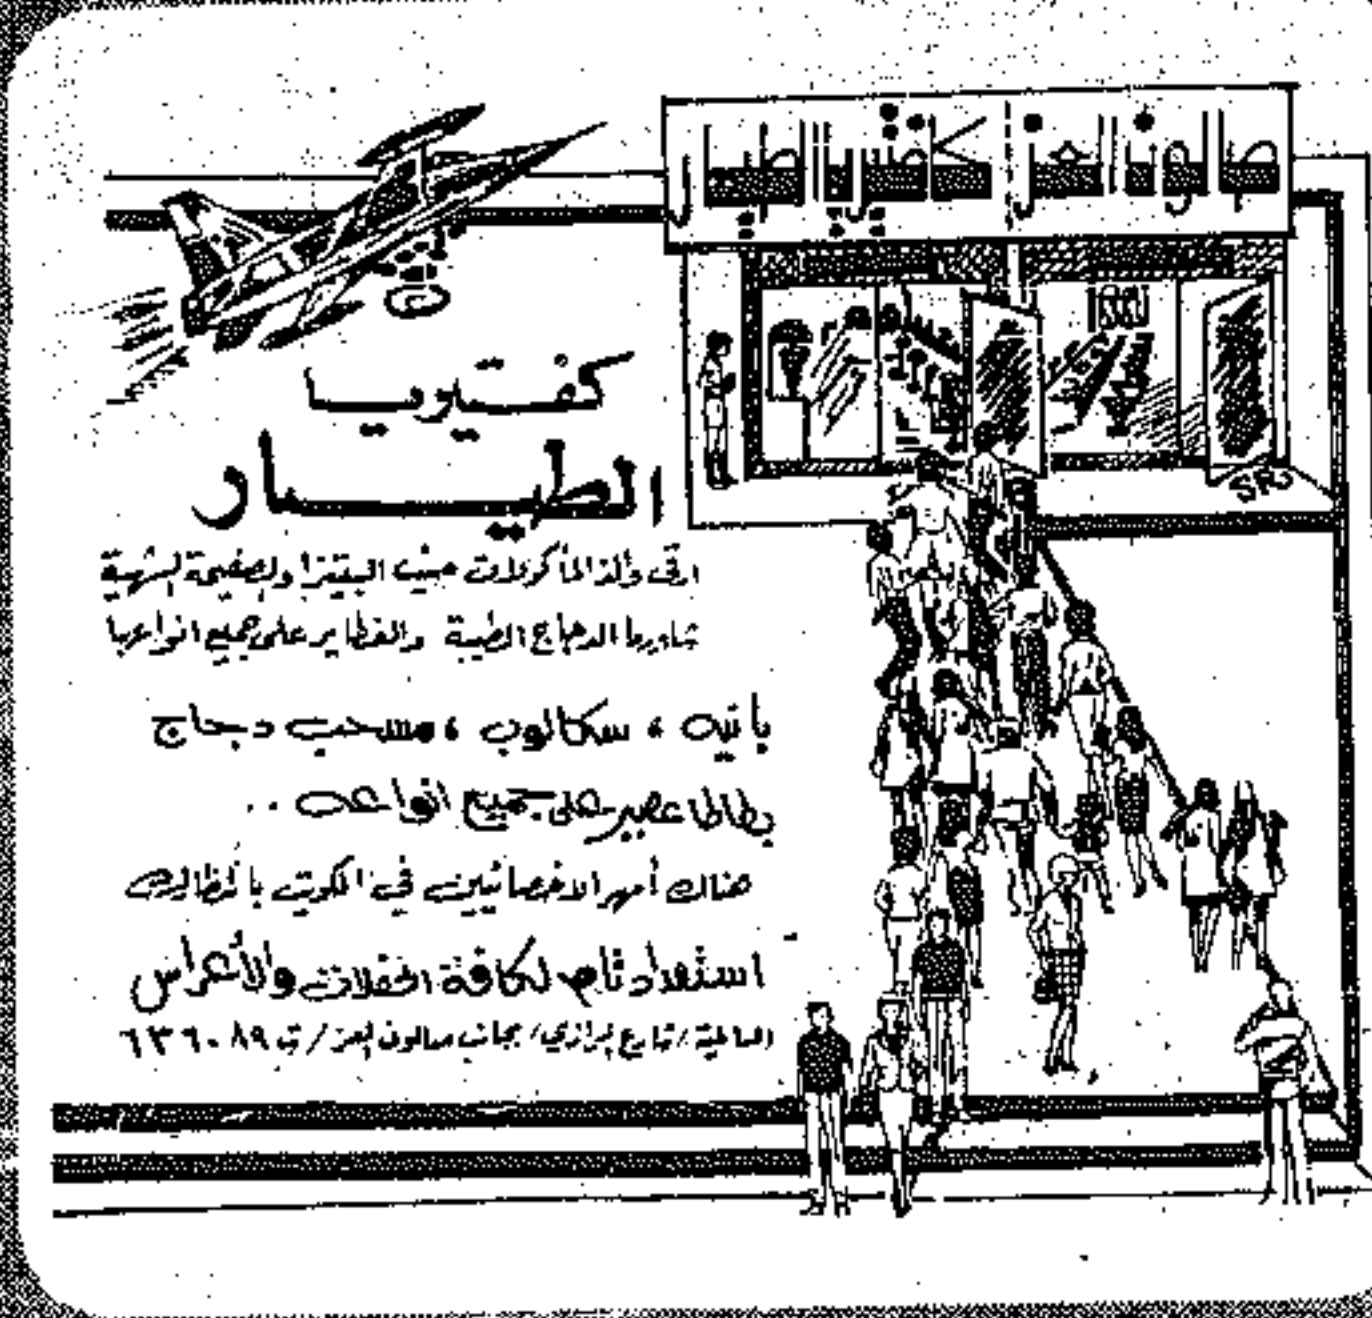 صالون العز كفتيريا الطيار
كفتيريا
الطيار
ارقى وألذ المأكولات حيث البيتزا والصفيحة الشهية
شاورما الدجاج الطيبة والفطاير على جميع انواعها
بانيه ، سكالوب ، مسحب دجاج
بطاطا عصير على جميع انواعه ..
هناك أمهر الاخصائيين في الكويت بانتظارك
استعداد تام لكافة الحفلات والأعراس
السالمية / شارع / بجانب صالون العز / ت ٦٣٦٠٨٩
SR